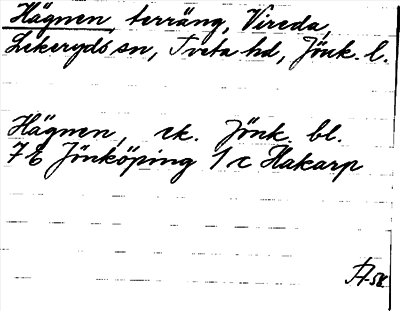 Hägnen, terräng, Vireda,
Lekeryds sn, Tveta hd, Jönk. l.
Hägnen, ek. Jönk. bl.
7 E Jönköping 1 c Hakarp